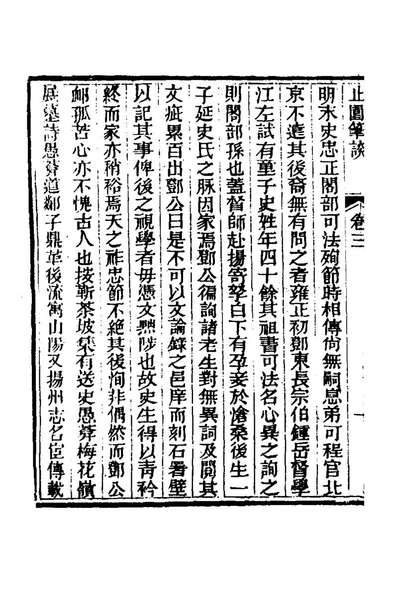 明末史忠正閣部可法殉節時相傳尚無嗣息弟可程官北
京不達其後裔無有問之者雍正初鄧東長宗伯鍾岳督學
江左試有童子史姓年四十餘其祖書可法名心異之詢之
則閣部孫也蓋督師赴揚寄孥白下有孕妾於滄桑後生一
子延史氏之脉因家焉鄧公徧詢諸老生對無異詞及閱其
文疵累百出鄧公曰是不可以文論錄之邑庠而刻石署壁
以記其事俾後之視學者毋憑文黜陟也故史生得以靑衿
終而家亦稍裕焉天之祚忠節不絕其後洵非偶然而鄧公
卹孤苦心亦不愧古人也按靳茶坡集有送史愚葊梅花嶺
展墓詩愚葊道鄰子鼎革後流寓山陽又揚州志名宦傳載
止園筆談
卷三